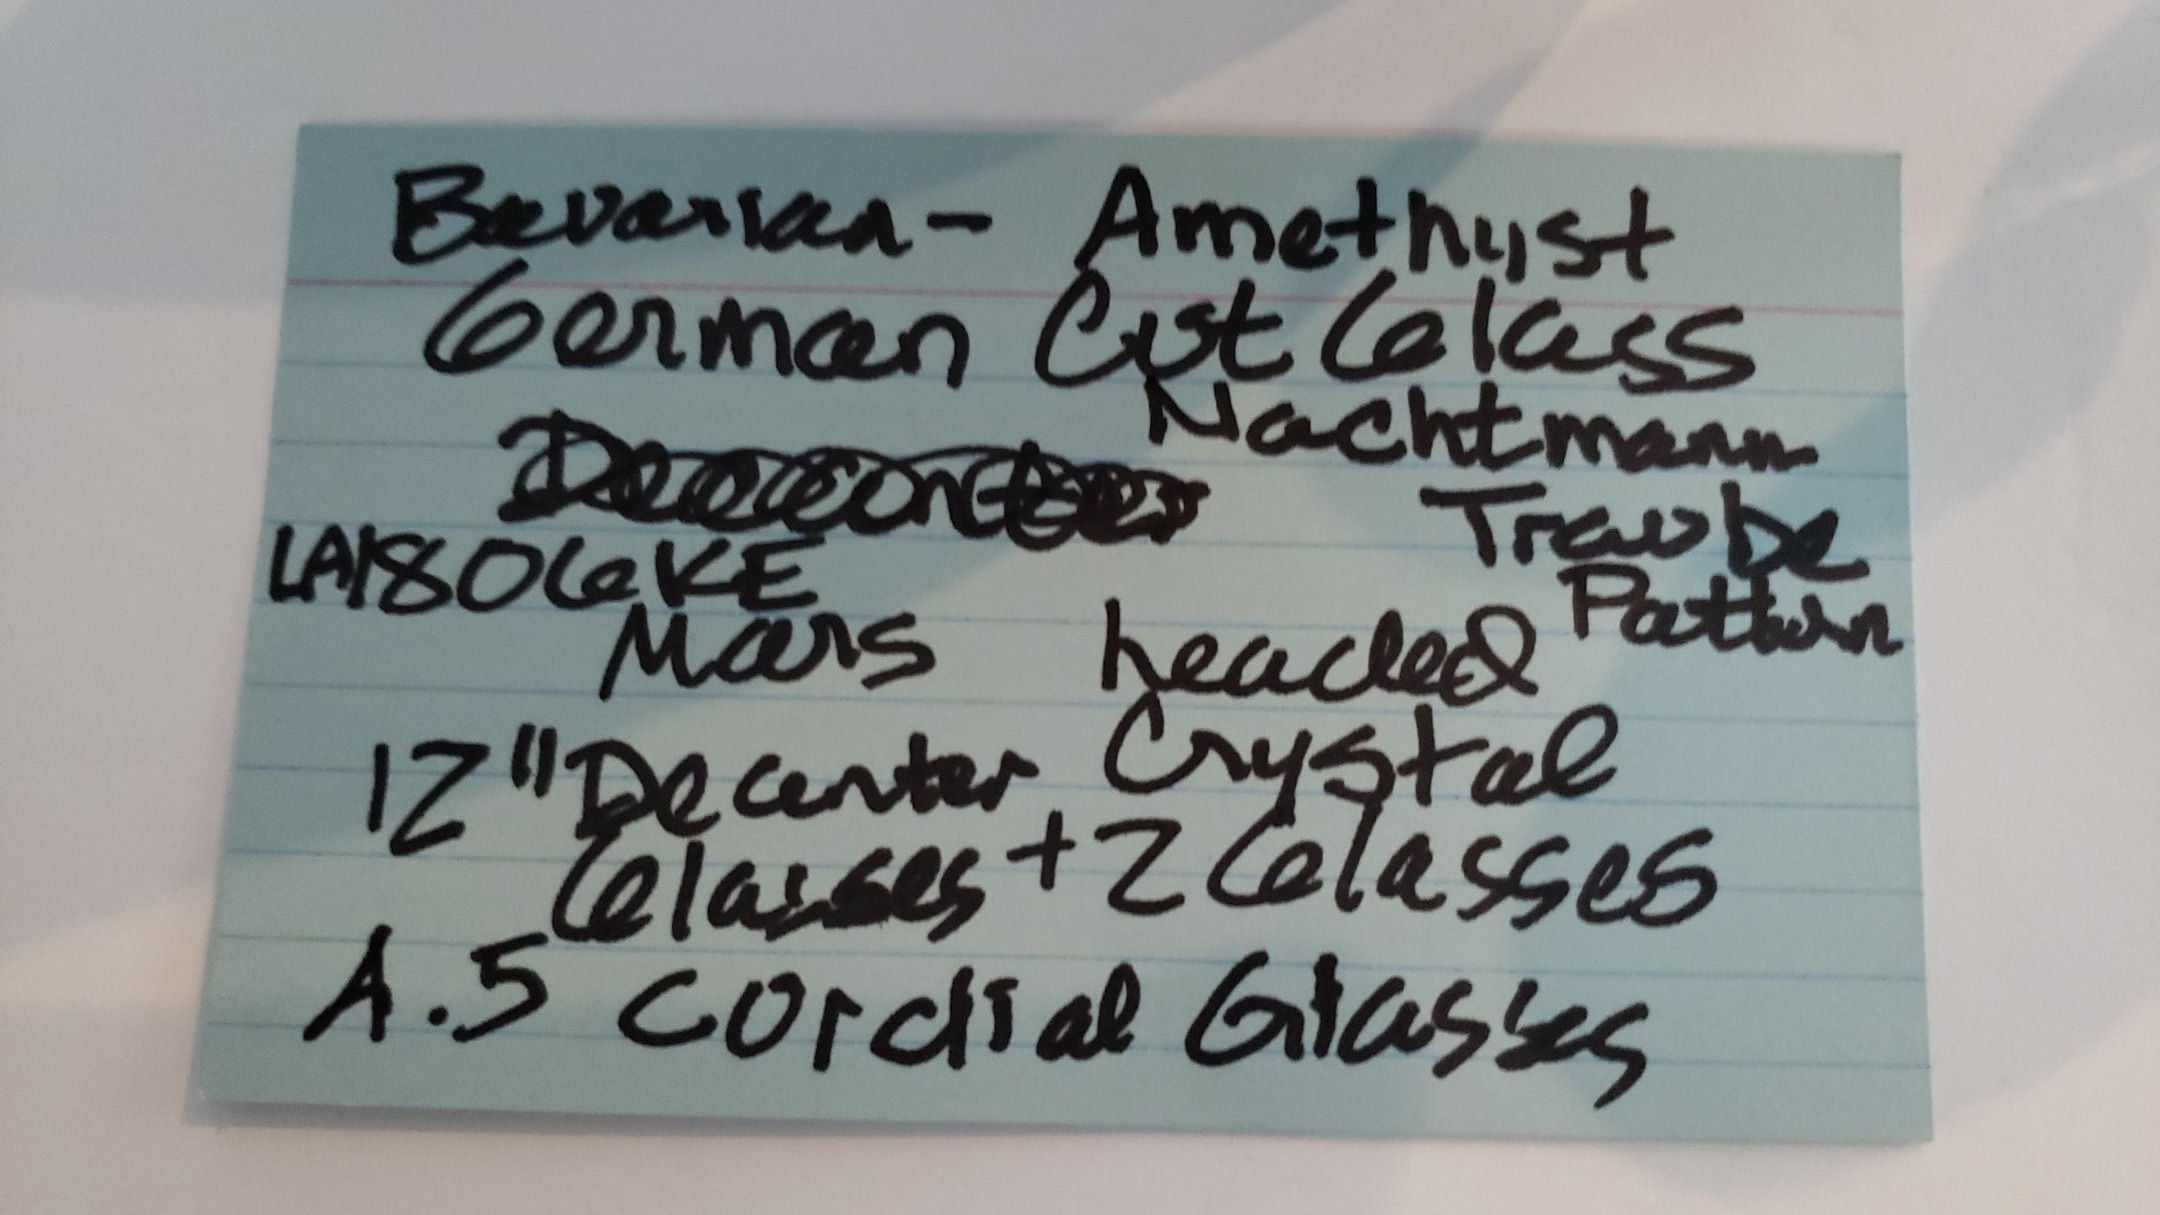 Bavarian - Amethyst
German Cut Glass
Nachtmann
Decanter
Traube
LA180GKE
Pattern
Mars Leaded
12" Decanter Crystal
Glasses + 2 Glasses
A.5 Cordial Glasses